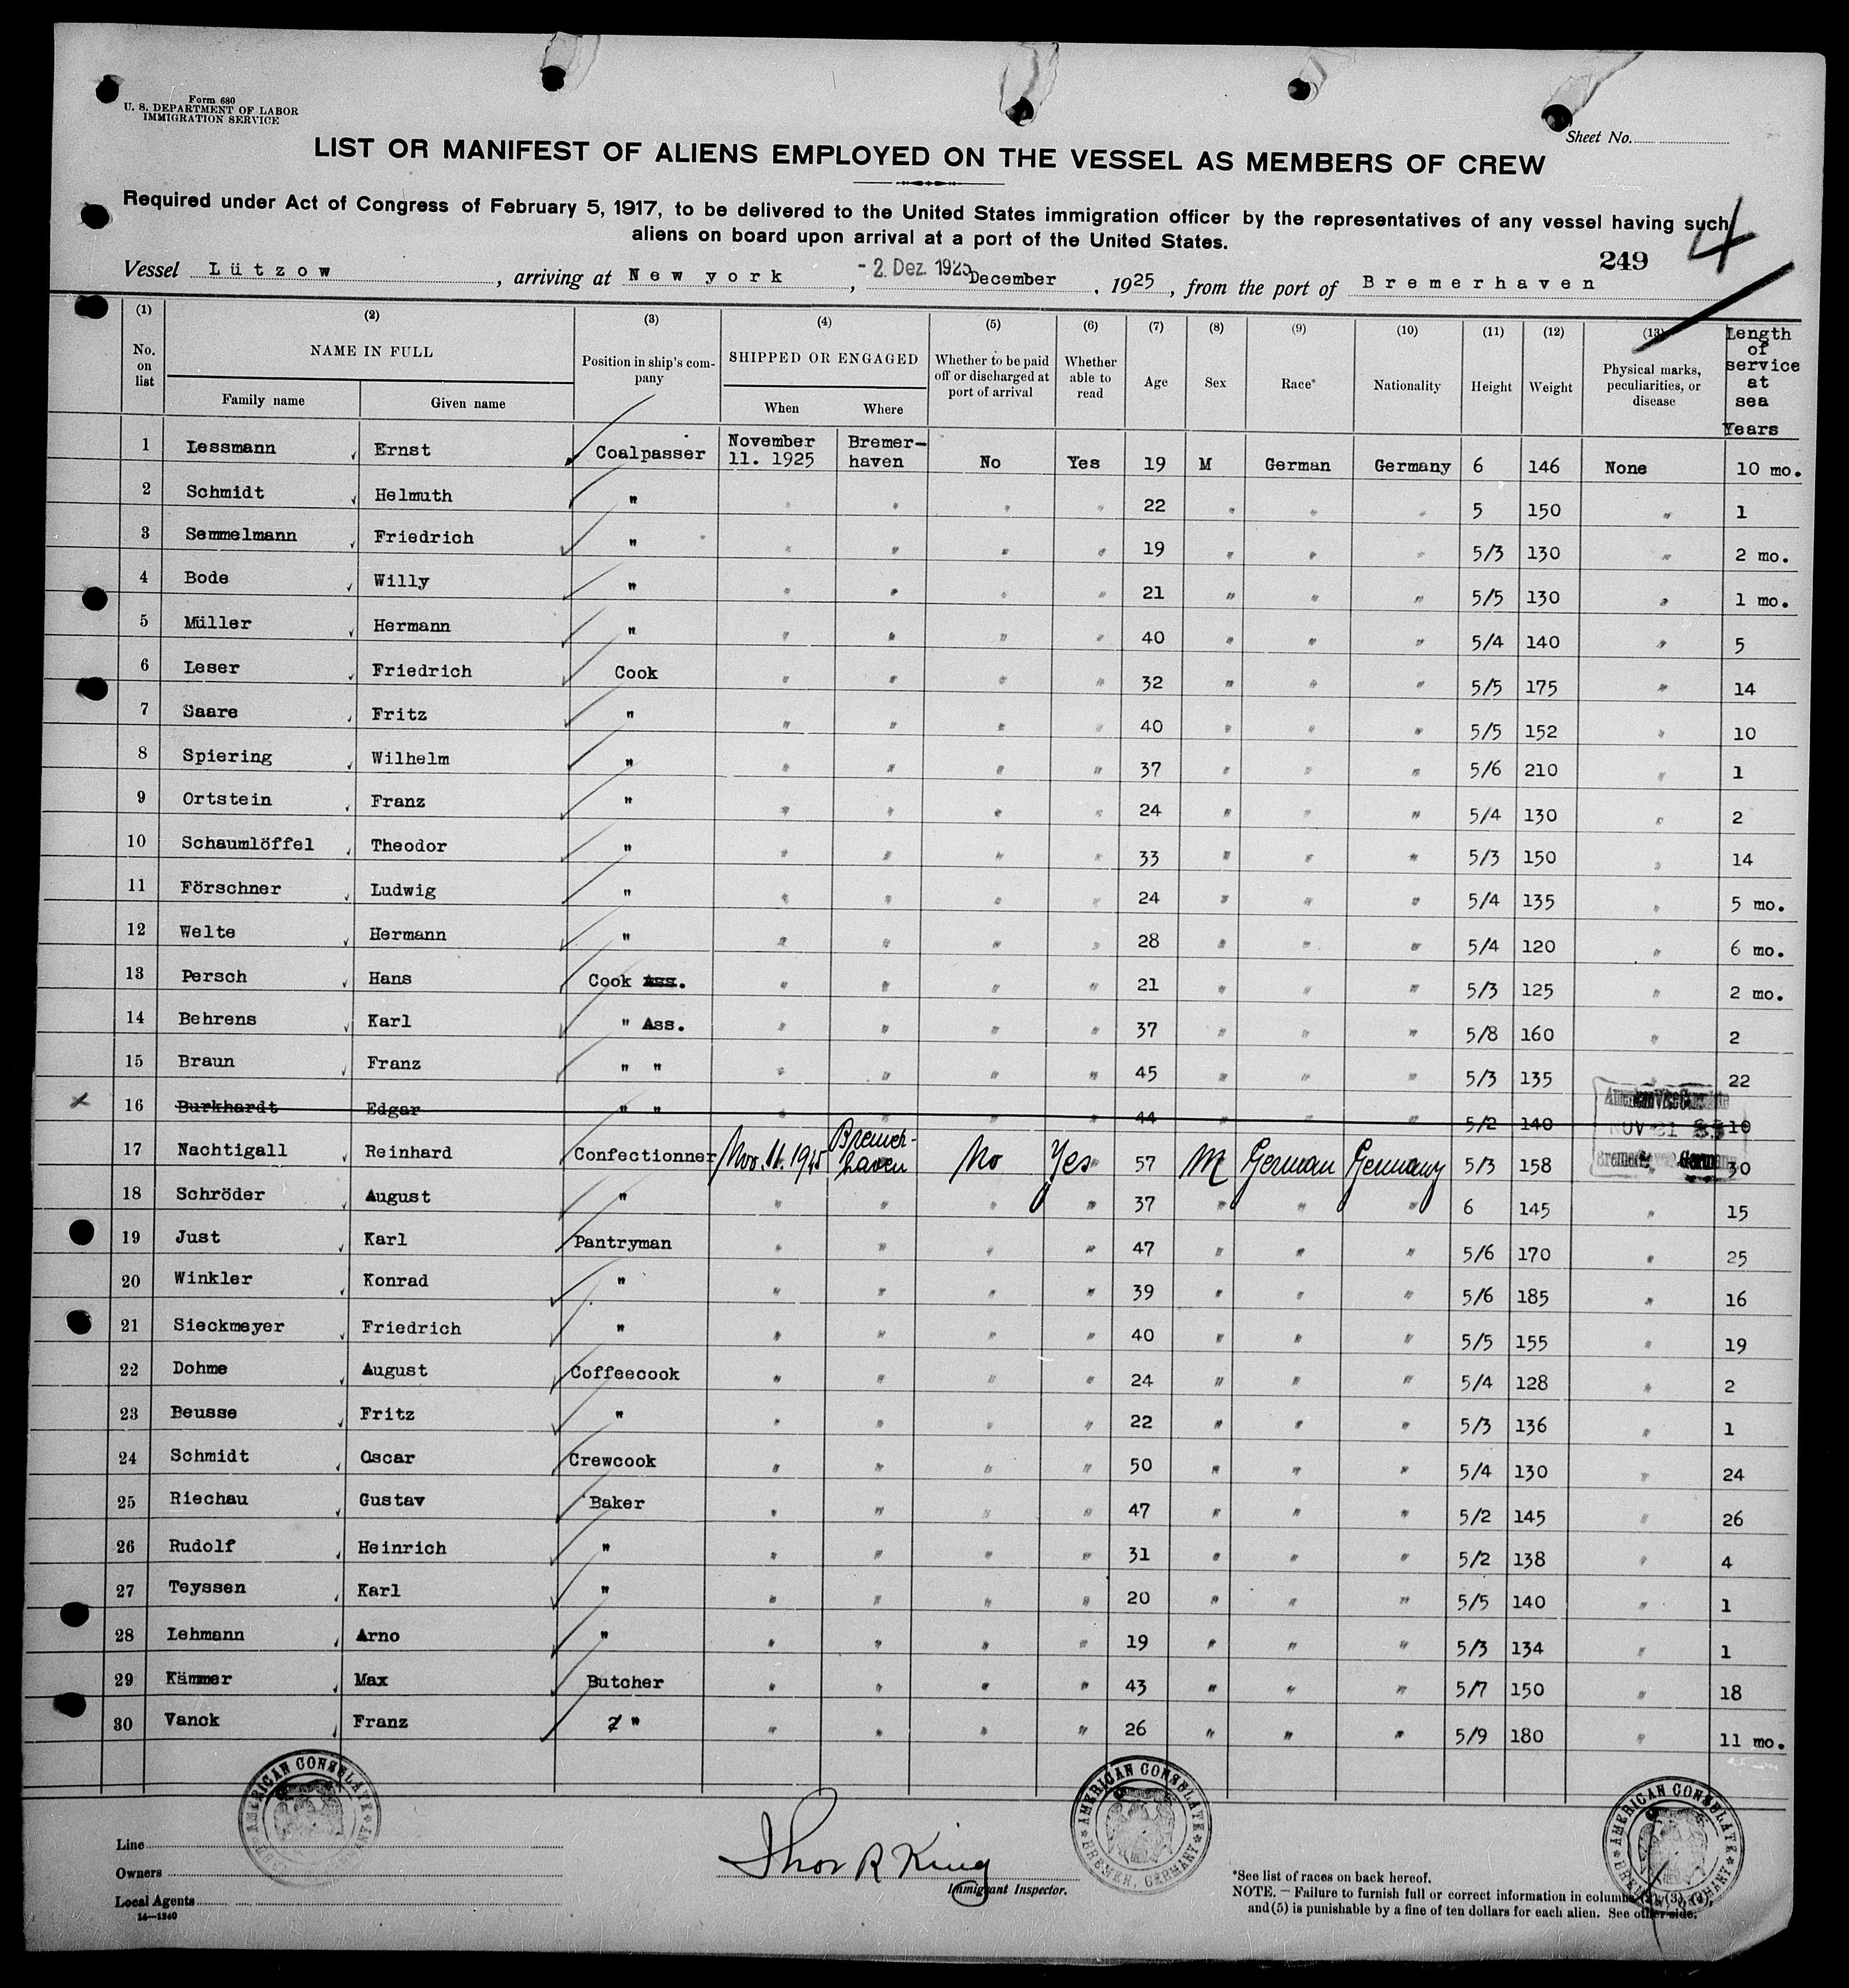 Form 680
U. S. DEPARTMENT OF LABOR
IMMIGRATION SERVICE
Sheet No.
LIST OR MANIFEST OF ALIENS EMPLOYED ON THE VESSEL AS MEMBERS OF CREW
Required under Act of Congress of February 5, 1917, to be delivered to the United States immigration officer by the representatives of any vessel having such
aliens on board upon arrival at a port of the United States.
4
249
Vessel Lützow, arriving at New york, -2. Dez. 1925 December, 1925, from the port of Bremerhaven
(1) (2) (3) (4) (5) (6) (7) (8) (9) (10) (11) (12) (13)
No. on list NAME IN FULL Family name Given name Position in ship's company SHIPPED OR ENGAGED When Where Whether to be paid off or discharged at port of arrival Whether able to read Age Sex Race* Nationality Height Weight Physical marks, peculiarities, or disease Length of service at sea Years
1 Lessmann Ernst Coalpasser November 11. 1925 Bremerhaven No Yes 19 M German Germany 6 146 None 10 mo.
2 Schmidt Helmuth " " " " " 22 " " " 5 150 " 1
3 Semmelmann Friedrich " " " " " 19 " " " 5/3 130 " 2 mo.
4 Bode Willy " " " " " 21 " " " 5/5 130 " 1 mo.
5 Müller Hermann " " " " " 40 " " " 5/4 140 " 5
6 Leser Friedrich Cook " " " " 32 " " " 5/5 175 " 14
7 Saare Fritz " " " " " 40 " " " 5/5 152 " 10
8 Spiering Wilhelm " " " " " 37 " " " 5/6 210 " 1
9 Ortstein Franz " " " " " 24 " " " 5/4 130 " 2
10 Schaumlöffel Theodor " " " " " 33 " " " 5/3 150 " 14
11 Förschner Ludwig " " " " " 24 " " " 5/4 135 " 5 mo.
12 Welte Hermann " " " " " 28 " " " 5/4 120 " 6 mo.
13 Persch Hans Cook Ass. " " " " 21 " " " 5/3 125 " 2 mo.
14 Behrens Karl " Ass. " " " " 37 " " " 5/8 160 " 2
15 Braun Franz " " " " " " 45 " " " 5/3 135 22
16 Burkhardt Edgar " " " " " " 44 " " " 5/2 140 10
American Vice Consulate
NOV 21
Bremerhaven, Germany
17 Nachtigall Reinhard Confectionner Nov. 11. 1925 Bremerhaven No Yes 57 M German Germany 5/3 158 " 30
18 Schröder August " " " " " 37 " " " 6 145 " 15
19 Just Karl Pantryman " " " " 47 " " " 5/6 170 " 25
20 Winkler Konrad " " " " " 39 " " " 5/6 185 " 16
21 Sieckmeyer Friedrich " " " " " 40 " " " 5/5 155 " 19
22 Dohme August Coffeecook " " " " 24 " " " 5/4 128 " 2
23 Beusse Fritz " " " " " 22 " " " 5/3 136 " 1
24 Schmidt Oscar Crewcook " " " " 50 " " " 5/4 130 " 24
25 Riechau Gustav Baker " " " " 47 " " " 5/2 145 " 26
26 Rudolf Heinrich " " " " " 31 " " " 5/2 138 " 4
27 Teyssen Karl " " " " " 20 " " " 5/5 140 " 1
28 Lehmann Arno " " " " " 19 " " " 5/3 134 " 1
29 Kämmer Max Butcher " " " " 43 " " " 5/7 150 " 18
30 Vanck Franz " " " " " 26 " " " 5/9 180 " 11 mo.
AMERICAN CONSULATE
AMERICAN CONSULATE BREMEN, GERMANY
AMERICAN CONSULATE BREMEN, GERMANY
Line
Owners
Local Agents
14—1240
Thos R King
Immigrant Inspector.
*See list of races on back hereof.
NOTE. — Failure to furnish full or correct information in columns (2), (3), (4),
and (5) is punishable by a fine of ten dollars for each alien. See other side.